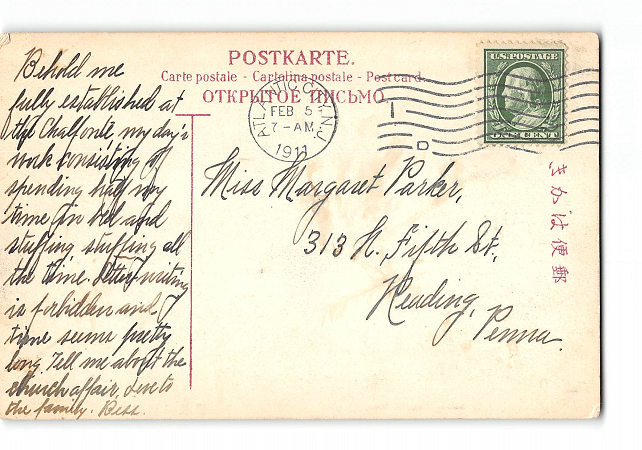 POSTKARTE.
Carte postale - Cartolina postale - Post card.
ОТКРЫТОЕ ПИСЬМО.
Behold me
fully established at
the Chalfonte my day's
work consisting of
spending half my
time in bed and
stuffing stuffing all
the time. Letter writing
is forbidden and
time seems pretty
long. Tell me about the
church affair, love to
the family. Bess.
ATLANTIC CITY, N.J.
FEB 5
7-AM
1911
D
U.S. POSTAGE
ONE CENT
Miss Margaret Parker,
313 N. Fifth St.,
Reading,
Penna.
きかは便郵